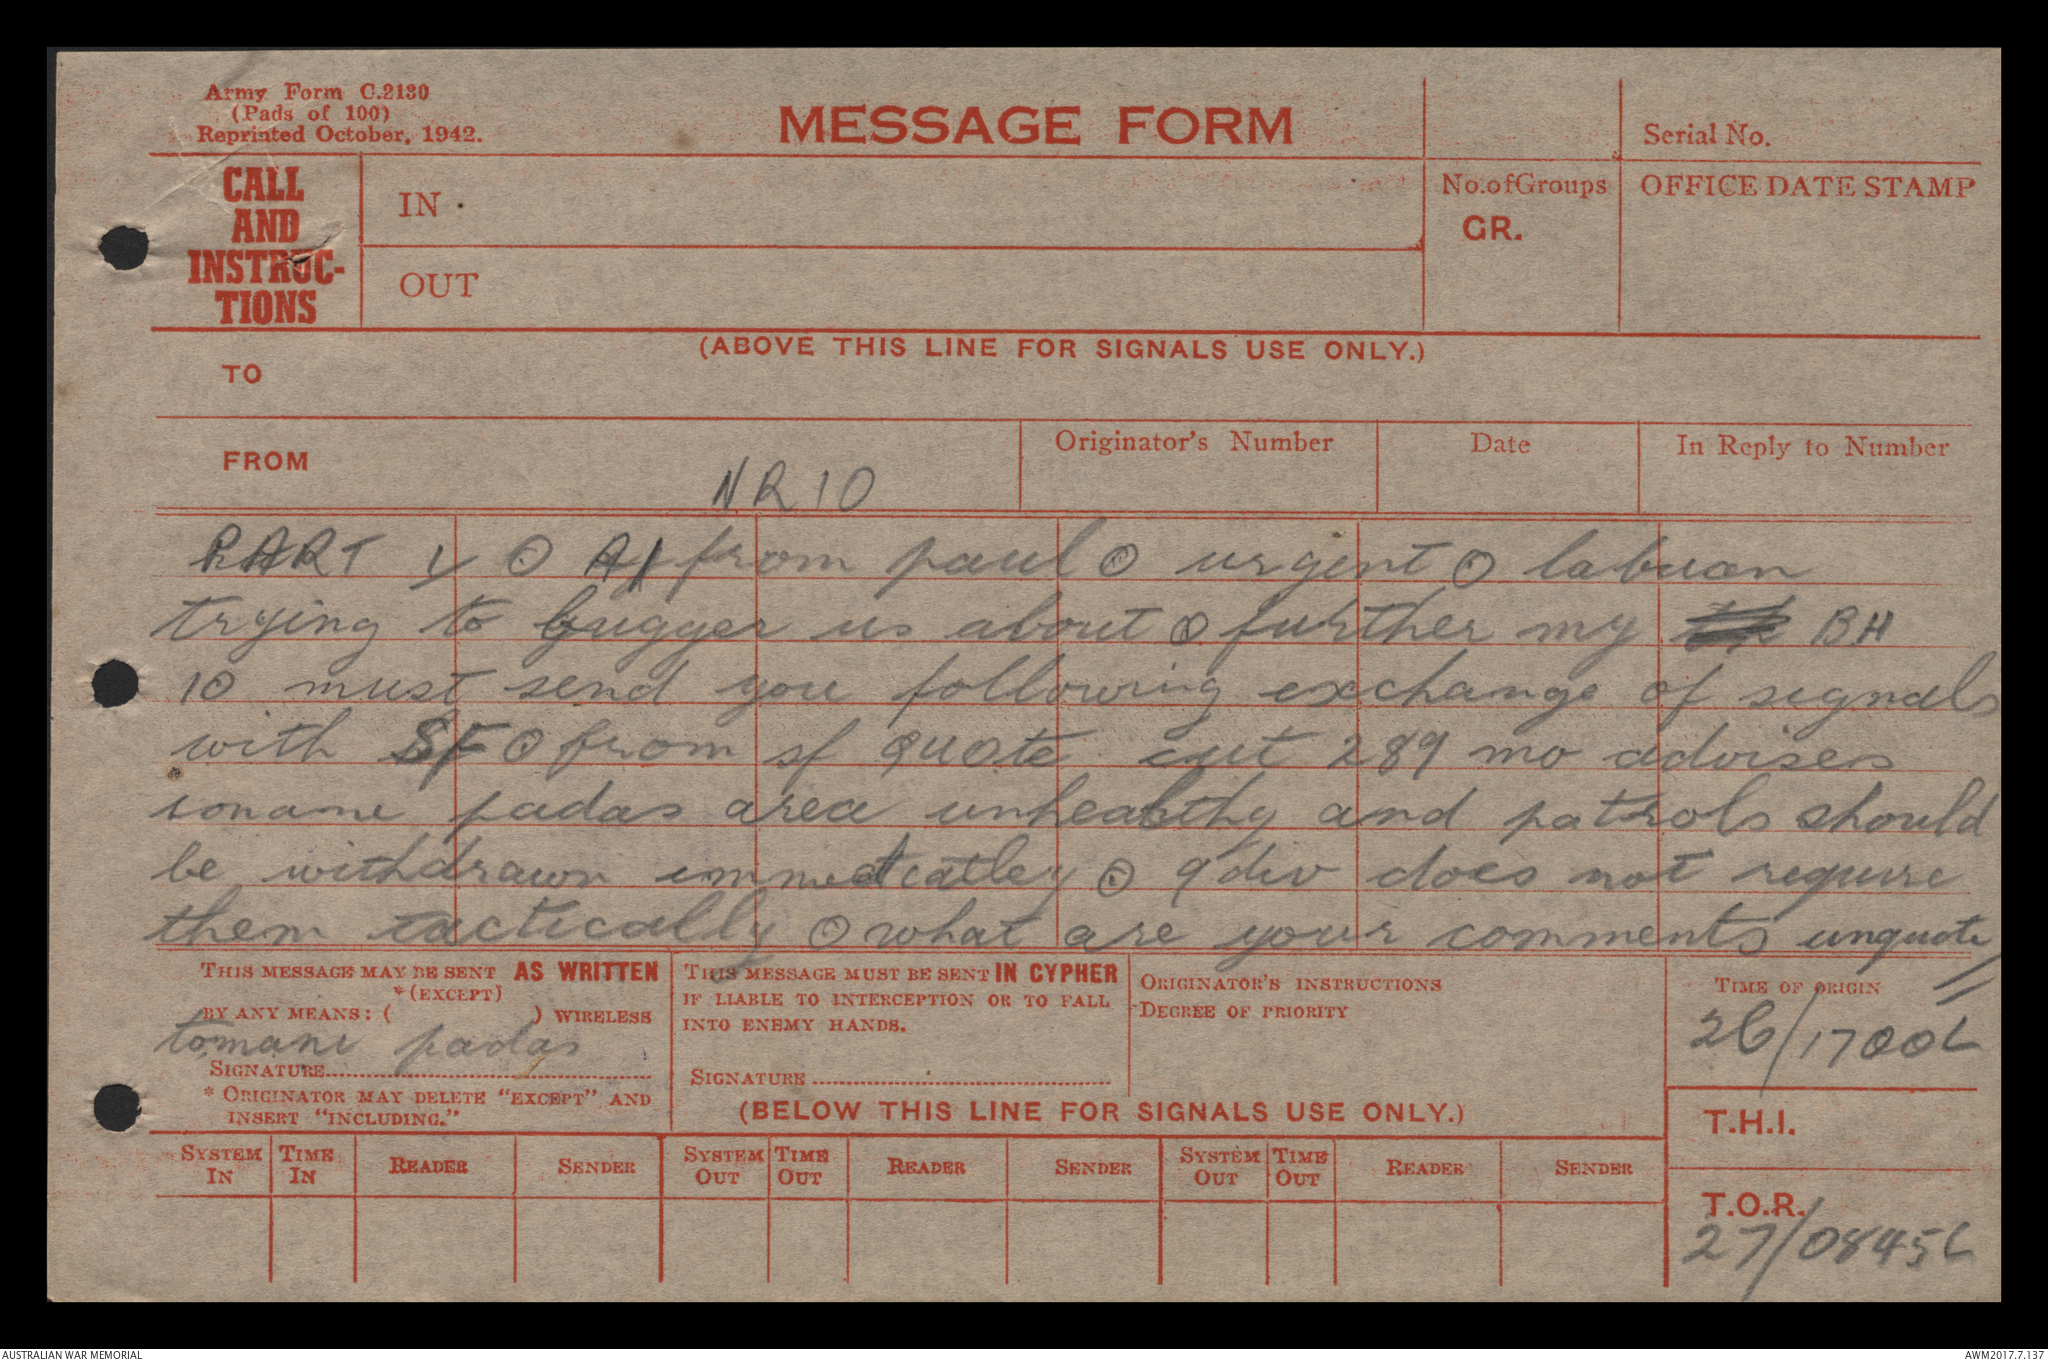 Army Form C.2130
(Pads of 100)
Reprinted October, 1942.
MESSAGE FORM
Serial No.
CALL
AND
INSTRUC-
TIONS
IN
OUT
No. of Groups
GR.
OFFICE DATE STAMP
(ABOVE THIS LINE FOR SIGNALS USE ONLY.)
TO
FROM
NR 10
Originator's Number
Date
In Reply to Number
PART 1/ ⊙ A/ from paul ⊙ urgent ⊙ labuan
trying to bugger us about ⊙ further my BH
10 must send you following exchange of signals
with SF ⊙ from sf quote cut 289 mo advises
toname padas area unhealthy and patrols should
be withdrawn immediatley ⊙ 9 div does not require
them tactically ⊙ what are your comments unquote //
THIS MESSAGE MAY BE SENT AS WRITTEN
*(EXCEPT)
BY ANY MEANS: ( ) WIRELESS
tomani padas
SIGNATURE
* ORIGINATOR MAY DELETE "EXCEPT" AND
INSERT "INCLUDING."
THIS MESSAGE MUST BE SENT IN CYPHER
IF LIABLE TO INTERCEPTION OR TO FALL
INTO ENEMY HANDS.
SIGNATURE
ORIGINATOR'S INSTRUCTIONS
DEGREE OF PRIORITY
TIME OF ORIGIN
26/1700L
(BELOW THIS LINE FOR SIGNALS USE ONLY.)
T.H.I.
SYSTEM IN
TIME IN
READER
SENDER
SYSTEM OUT
TIME OUT
READER
SENDER
SYSTEM OUT
TIME OUT
READER
SENDER
T.O.R.
27/0845L
AUSTRALIAN WAR MEMORIAL
AWM2017.7.137